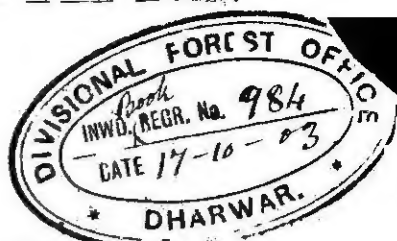 DIVISIONAL FOREST OFFICE
Book
INWD. REGR. No. 984
DATE 17-10-03
* DHARWAR. *